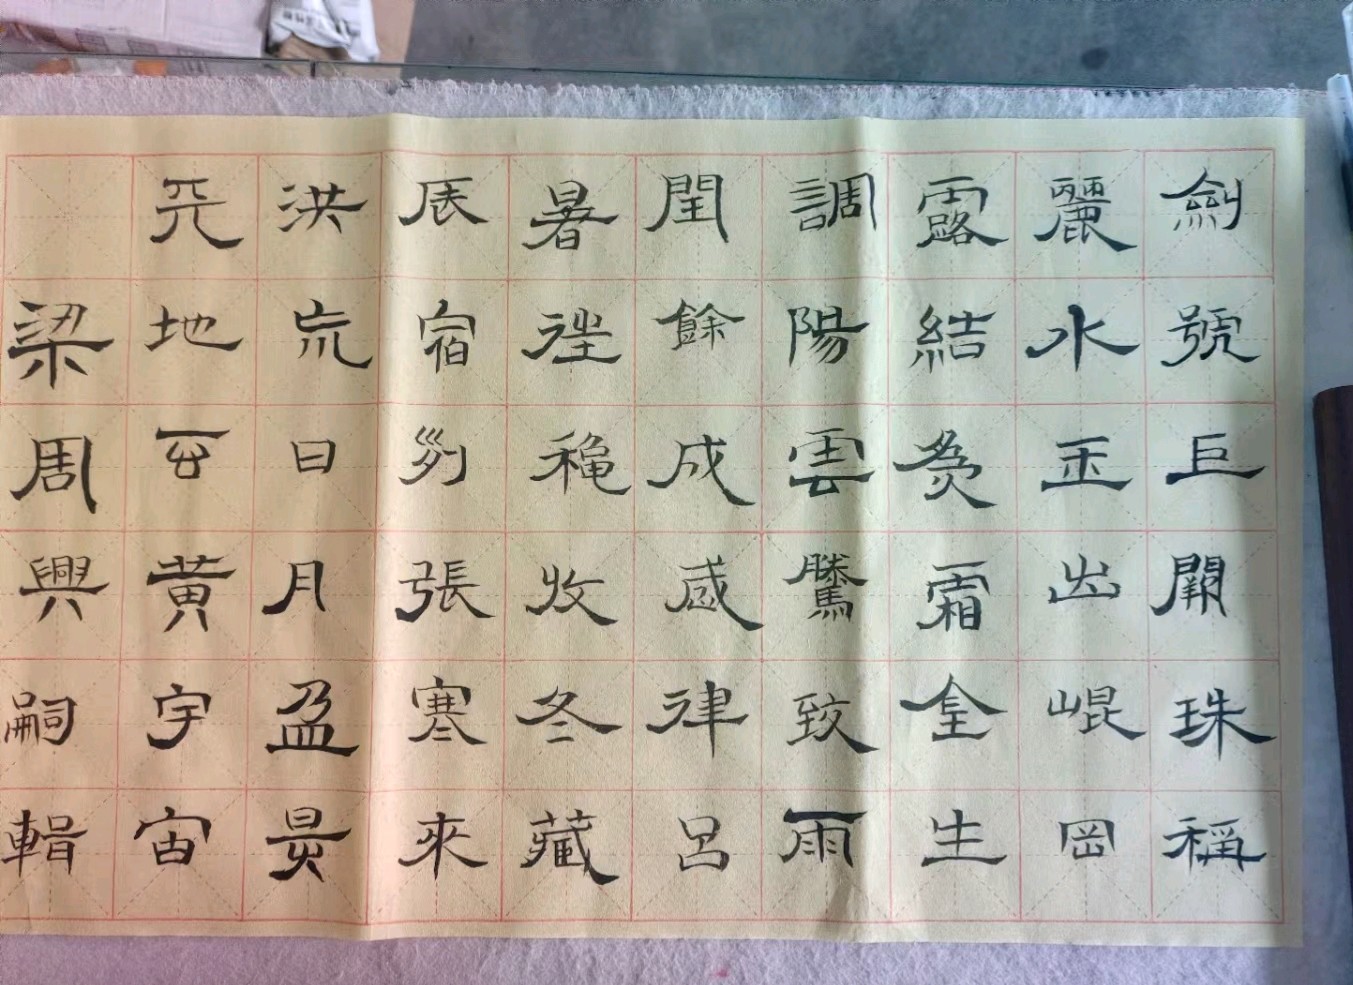 梁周興嗣輯
天地玄黃宇宙
洪荒日月盈昃
辰宿列張寒來
暑往秋收冬藏
閏餘成歲律呂
調陽雲騰致雨
露結為霜金生
麗水玉出崐岡
劍號巨闕珠稱